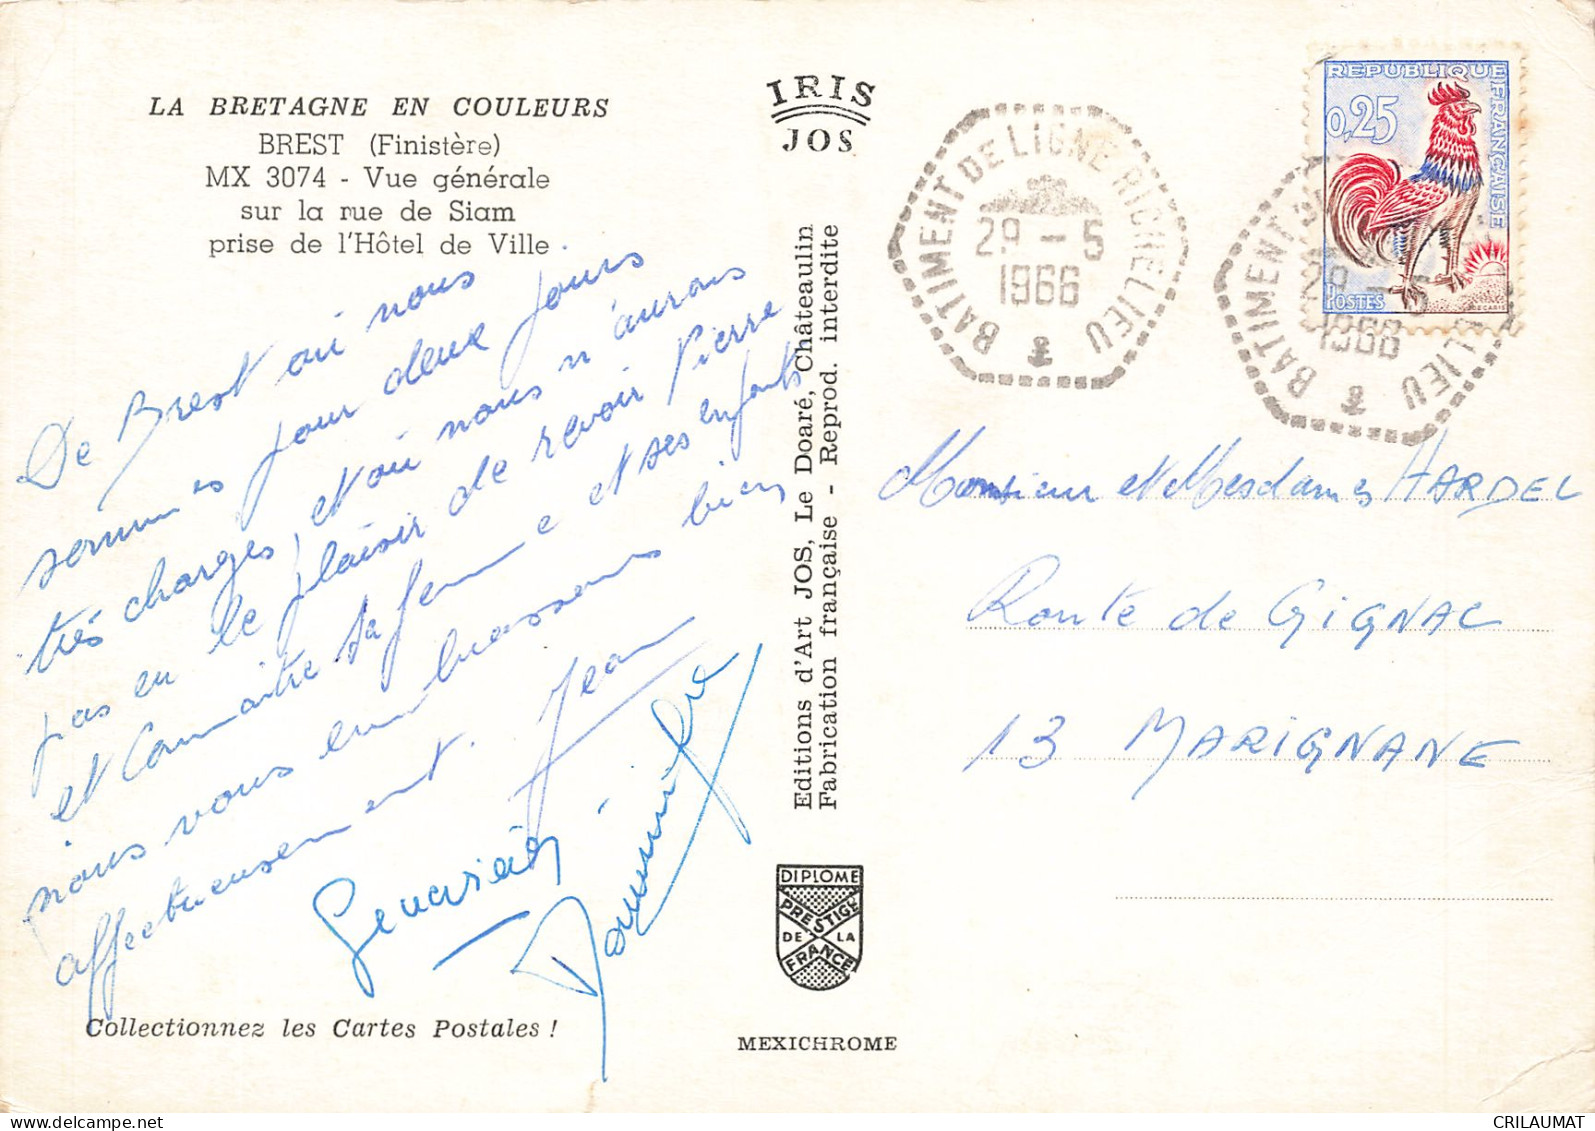 LA BRETAGNE EN COULEURS
BREST (Finistère)
MX 3074 - Vue générale
sur la rue de Siam
prise de l'Hôtel de Ville
De Brest où nous
sommes pour deux jours
très chargés, et où nous n'aurons
pas eu le plaisir de revoir Pierre
et connaitre sa femme et ses enfants
nous vous embrassons bien
affectueusement. Jean
Geneviève
Dominique
Collectionnez les Cartes Postales !
IRIS
JOS
Editions d'Art JOS, Le Doaré, Châteaulin
Fabrication française - Reprod. interdite
DIPLOME
PRESTIGE
DE LA
FRANCE
MEXICHROME
BATIMENT DE LIGNE RICHELIEU
29-5
1966
REPUBLIQUE FRANÇAISE
0,25
POSTES
DECARIS
BATIMENT
29-5
1966
ELIEU
Monsieur et Mesdames HARDEL
Route de GIGNAC
13 MARIGNANE
CRILAUMAT